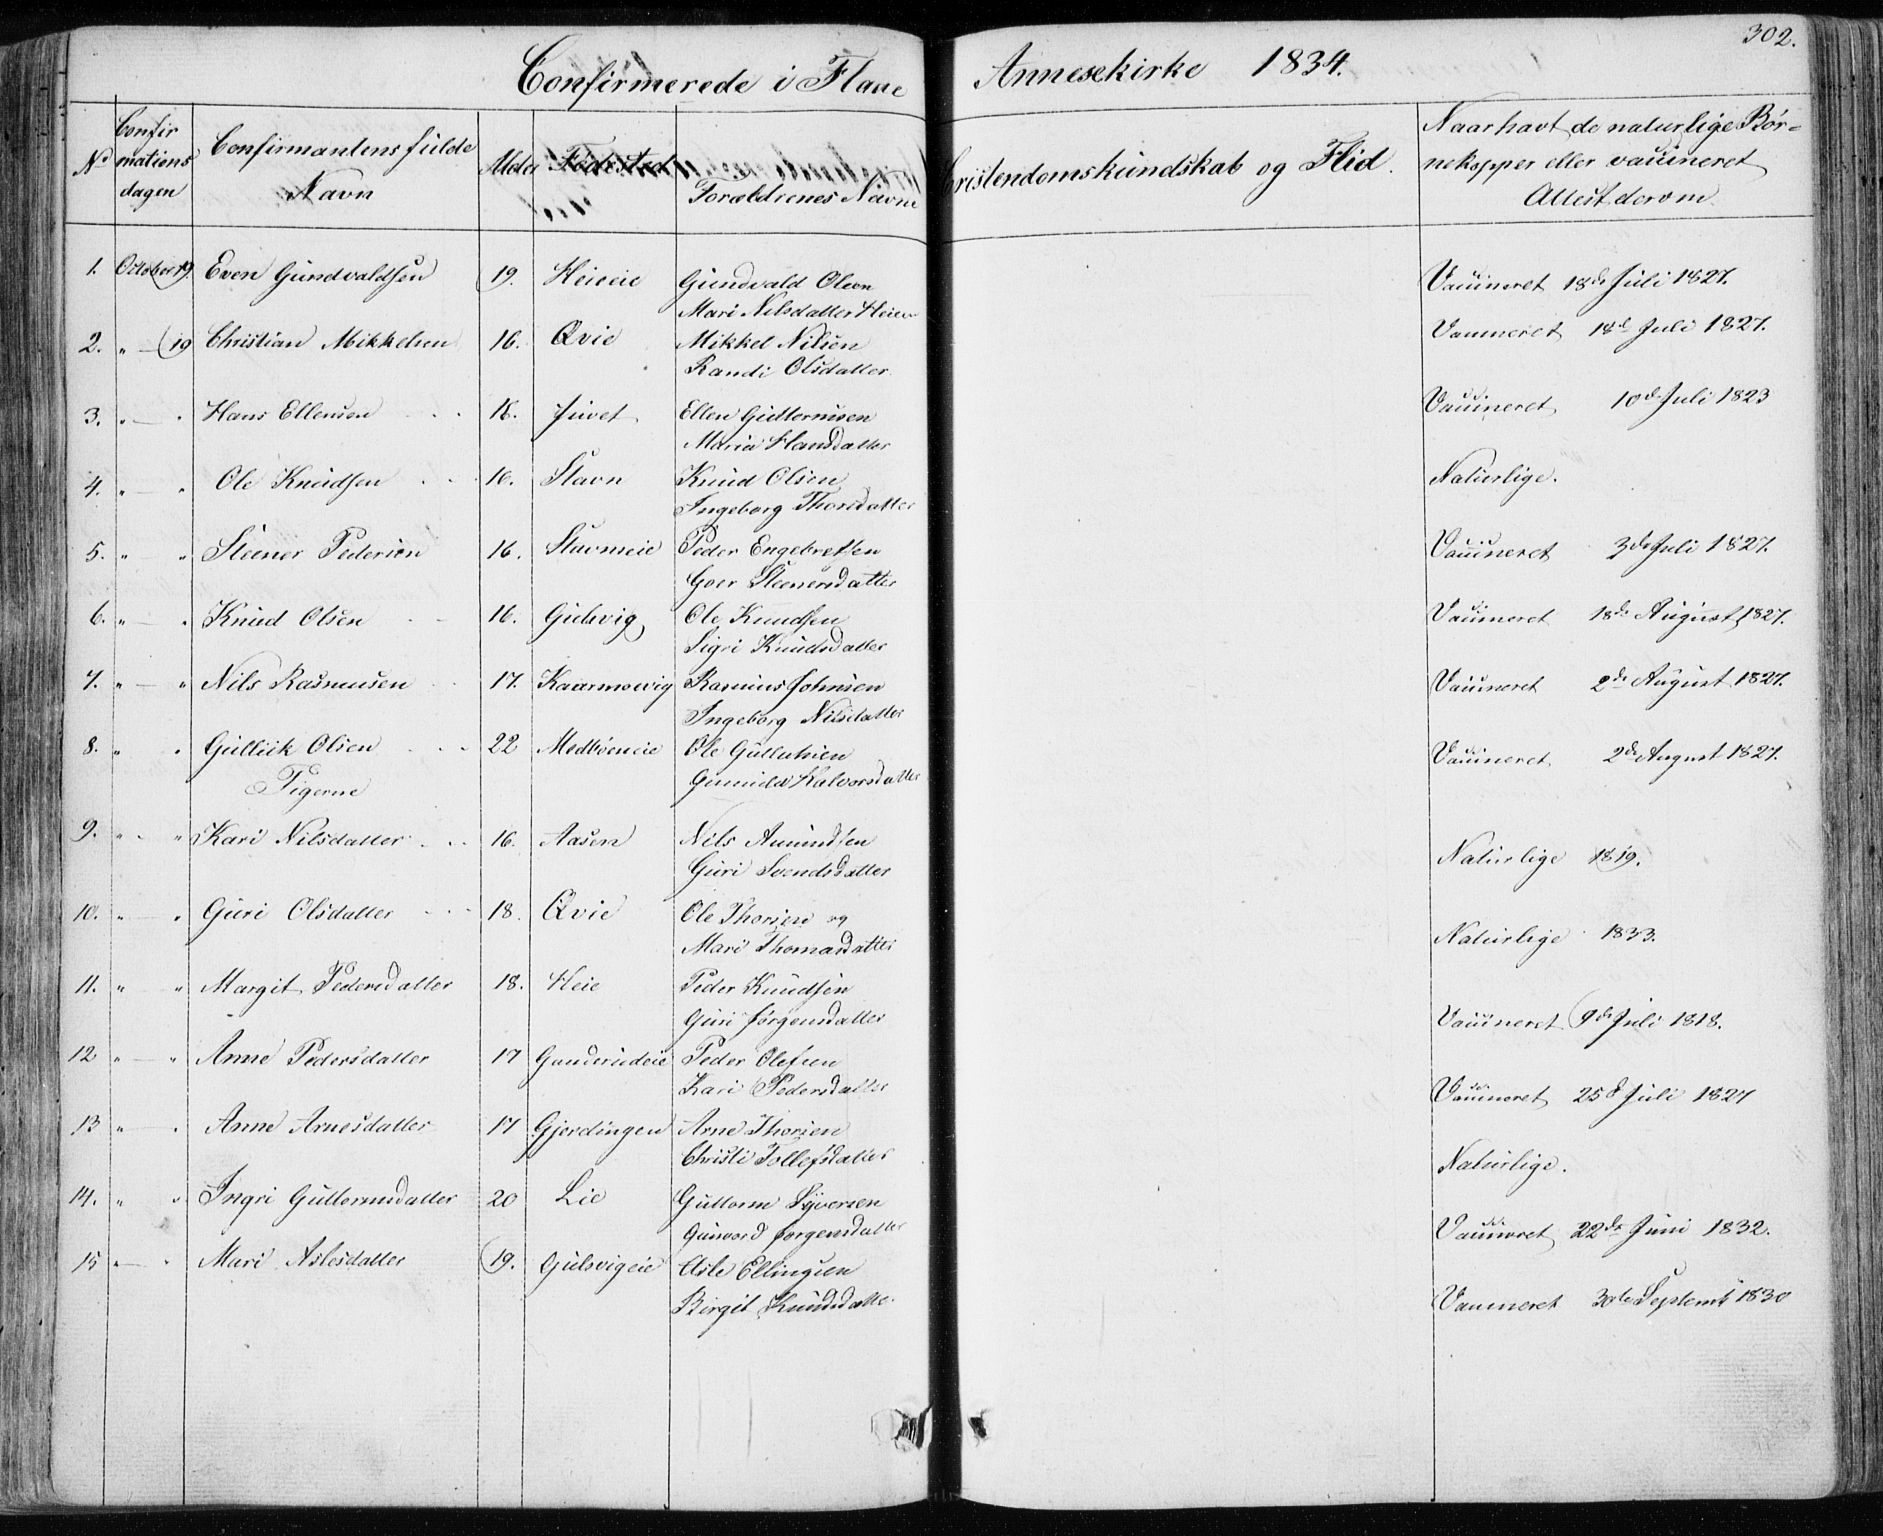 302.
Confirmerede i Flaae Annexekirke 1834.
No Confirmations dagen Confirmantens fulde Navn Alder Fødested Forældrenes Navne Cristendomskundskab og Flid. Naar havt de naturlige Børnekopper eller vaccineret Attest derom
1. October 19. Even Gundvaldsen 19. Heieeie Gundvald Olsen Vaccineret 18de Juli 1827.
Mari Nilsdatter Heien
2. " — 19 Christian Mikkelsen 16. Qvie Mikkel Nilsen Vaccineret 18d Juli 1827.
Randi Olsdatter
3. " — " Hans Ellensen 16. Juvet Ellen Guttormsen Vaccineret 10de Juli 1823
Maria Hansdatter
4. " — " Ole Knudsen 16. Stavn Knud Olsen Naturlige.
Ingeborg Thorsdatter
5. " " Steener Pedersen 16. Stavneeie Peder Engebretsen Vaccineret 3de Juli 1827.
Goer Steenersdatter
6. " — " Knud Olsen 16. Gulsvig Ole Knudsen Vaccineret 18de August 1827.
Sigri Knudsdatter
7. " — " Nils Rasmusen 17. Kaarmoevig Rasmus Johnsen Vaccineret 2de August 1827.
Ingeborg Nilsdatter
8. " " Gullick Olsen 22 Medbøeneie Ole Gulliksen Vaccineret 2de August 1827.
Gunnild Halvorsdatter
Pigerne
9. " - " Kari Nilsdatter 16. Aasen Nils Amundsen Naturlige 1819.
Guri Svendsdatter
10. " — " Guri Olsdatter 18. Qvie Ole Thorsen og Naturlige 1833.
Mari Thomasdatter
11. " " Margit Pedersdatter 18. Heie Peder Knudsen Vaccineret 9de Juli 1818.
Guri Jørgensdatter
12 " — " Anne Pedersdatter 17 Gandrudeie Peder Olefsen Vaccineret 25d Juli 1827
Kari Pedersdatter
13 " — " Anne Arnesdatter 17 Gjerdingen Arne Thorsen Naturlige.
Christi Tollefsdatter
14. " " Ingri Guttormsdatter 20 Lie Guttorm Syversen Vaccineret 22de Juni 1832.
Gunvord Jorgensdatter
15 " — " Mari Aslesdatter 19. Gulsvigeie Asle Ellingsen Vaccineret 30te Septemb 1830
Birgit Knudsdatte.